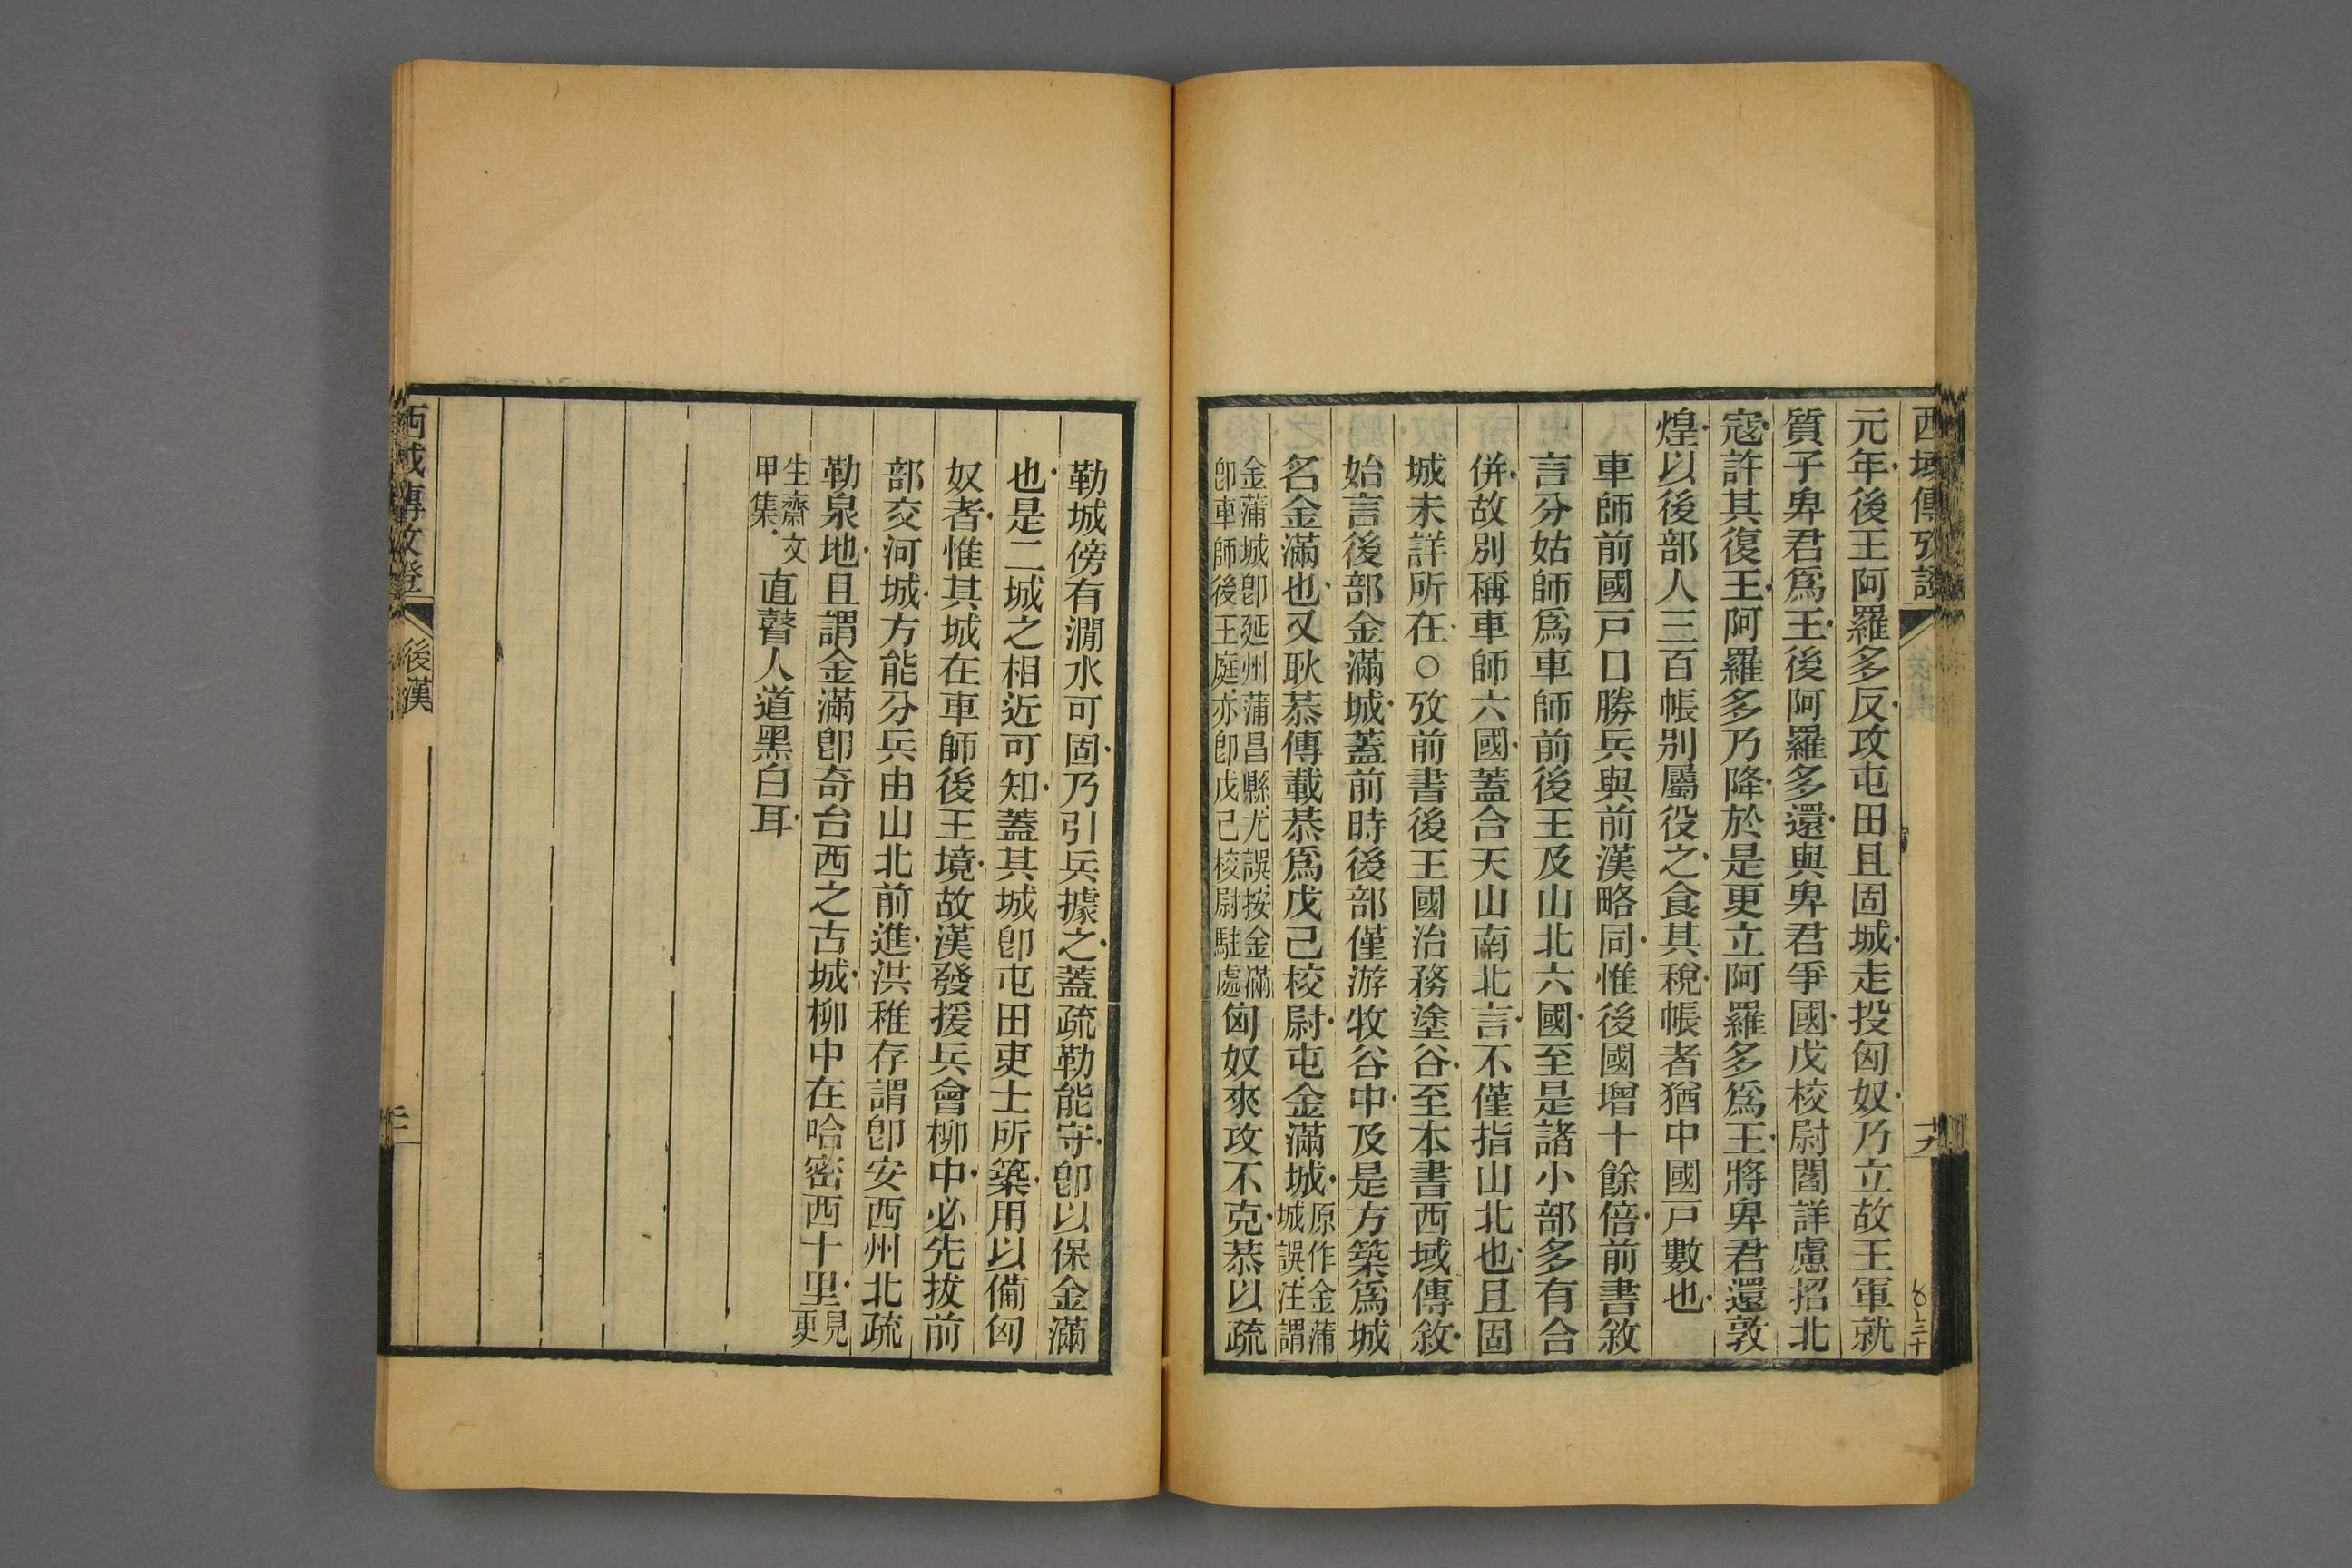 西域傳攷證
元年後王阿羅多反攻屯田且固城走投匈奴乃立故王軍就
質子卑君爲王後阿羅多還與卑君爭國戊校尉閻詳慮招北
寇許其復王阿羅多乃降於是更立阿羅多爲王將卑君還敦
煌以後部人三百帳別屬役之食其稅帳者猶中國戸數也
車師前國戸口勝兵與前漢略同惟後國增十餘倍前書敘
言分姑師爲車師前後王及山北六國至是諸小部多有合
併故別稱車師六國蓋合天山南北言不僅指山北也且固
城未詳所在○攷前書後王國治務塗谷至本書西域傳敘
始言後部金滿城蓋前時後部僅游牧谷中及是方築爲城
名金滿也又耿恭傳載恭爲戊己校尉屯金滿城原作金蒲城誤注謂
金蒲城卽延州蒲昌縣尤誤按金滿卽車師後王庭亦卽戊己校尉駐處匈奴來攻不克恭以疏
勒城傍有澗水可固乃引兵據之蓋疏勒能守卽以保金滿
也是二城之相近可知蓋其城卽屯田吏士所築用以備匈
奴者惟其城在車師後王境故漢發援兵會柳中必先拔前
部交河城方能分兵由山北前進洪稚存謂卽安西州北疏
勒泉地且謂金滿卽奇台西之古城柳中在哈密西十里見更
生齋文甲集直瞽人道黑白耳
西域傳攷證
後漢